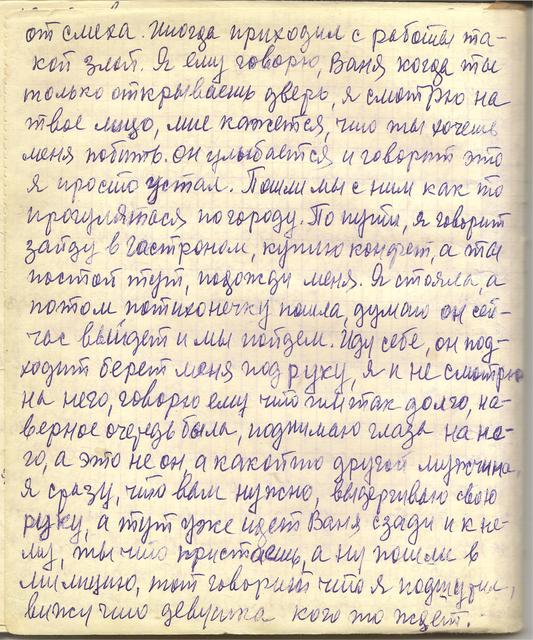 от смеха. Иногда приходил с работы та-
кой злой. Я ему говорю, Ваня когда ты
только открываешь дверь, я смотрю на
твое лицо, мне кажется, что ты хочешь
меня побить. Он улыбается и говорит это
я просто устал. Пошли мы с ним как то
прогулятася по городу. По пути, я говорит
зайду в гастроном, куплю конфет, а ты
постой тут, подожди меня. Я стояла, а
потом потихонечку пошла, думаю он сей-
час выйдет и мы пойдем. Иду себе, он под-
ходит берет меня под руку, я и не смотрю
на него, говорю ему что ж так долго, на-
верное очередь была, поднимаю глаза на не-
го, а это не он, а какой то другой мужчина,
я сразу, что вам нужно, выдергиваю свою
руку, а тут уже идет Ваня сзади и к не-
му, ты что пристаешь, а ну пошли в
милицию, тот говорит что я подшутил,
вижу что девушка кого то ждет.